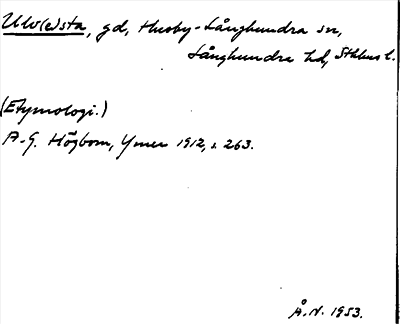 Ulv(e)sta, gd, Husby-Långhundra sn,
Långhundra hd, Sthlms l.
(Etymologi.)
A.G. Högbom, Ymer 1912, s. 263.
Å.N. 1953.